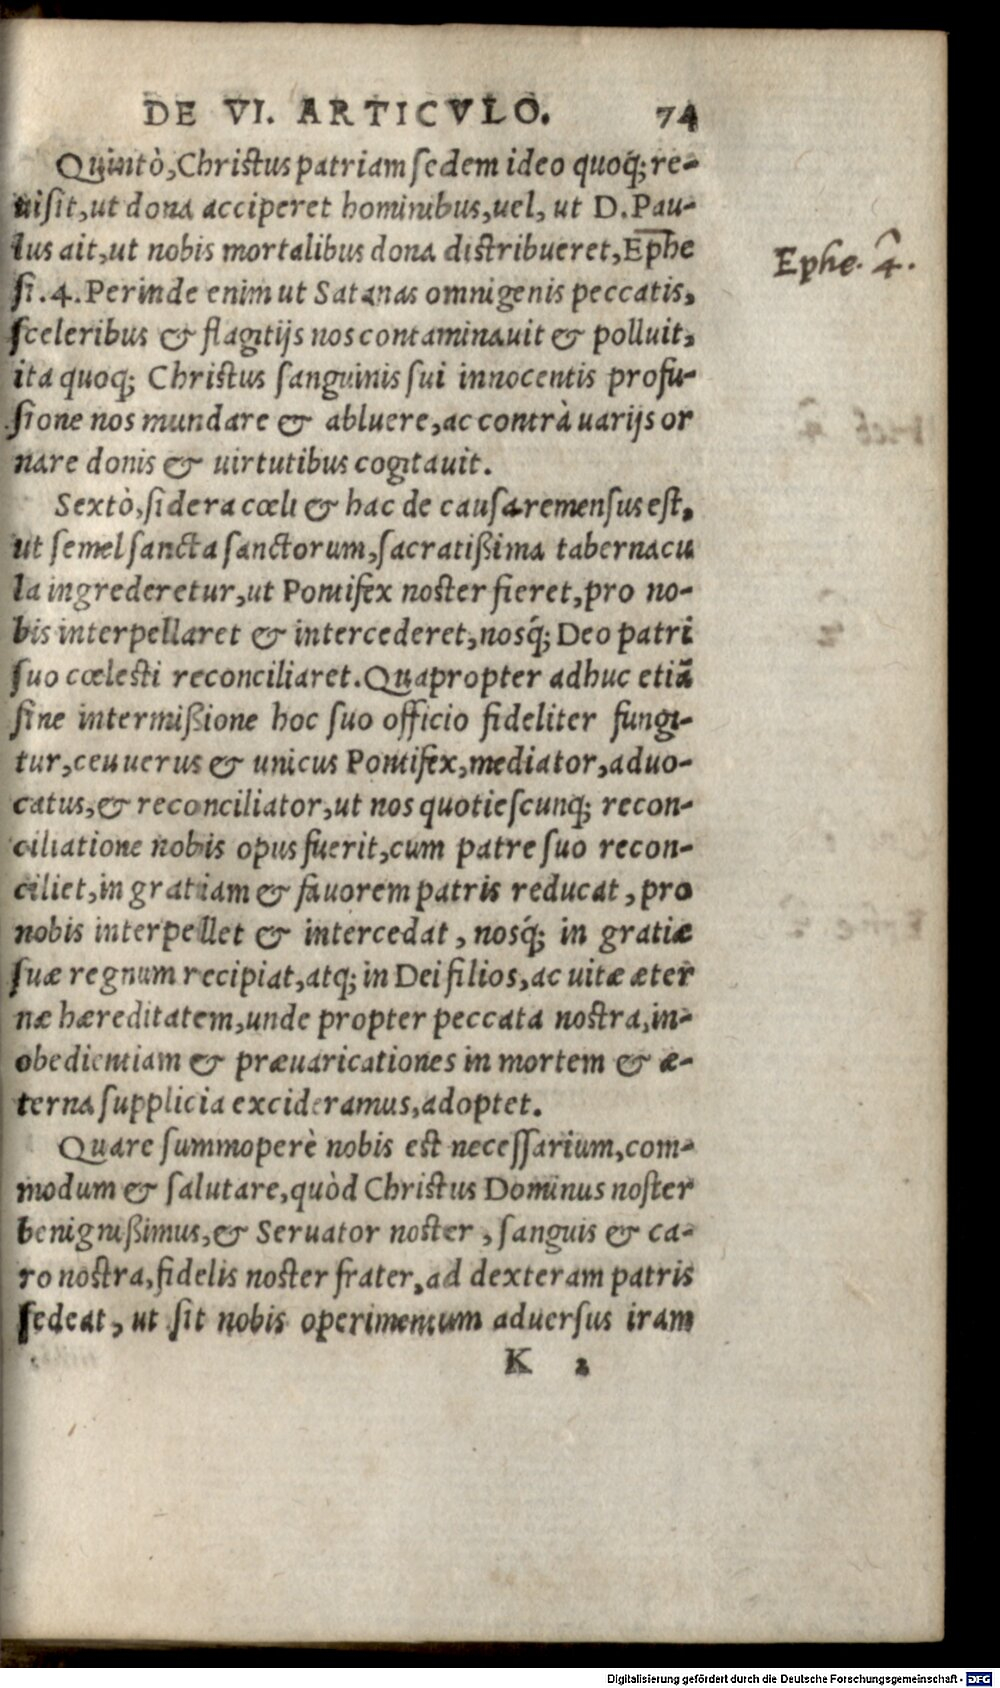 DE VI. ARTICVLO. 74
Quintò, Christus patriam sedem ideo quoq́; re-
uisit, ut dona acciperet hominibus, uel, ut D. Pau-
lus ait, ut nobis mortalibus dona distribueret, Ephe
si. 4. Perinde enim ut Satanas omnigenis peccatis,
sceleribus & flagitijs nos contaminauit & polluit,
ita quoq; Christus sanguinis sui innocentis profu-
sione nos mundare & abluere, ac contrà uarijs or
nare donis & uirtutibus cogitauit.
Sextò, sidera cœli & hac de causa remensus est,
ut semel sancta sanctorum, sacratißima tabernacu
la ingrederetur, ut Pontifex noster fieret, pro no-
bis interpellaret & intercederet, nosq́; Deo patri
suo cœlesti reconciliaret. Quapropter adhuc etiã
sine intermißione hoc suo officio fideliter fungi-
tur, ceu uerus & unicus Pontifex, mediator, aduo-
catus, & reconciliator, ut nos quotiescunq; recon-
ciliatione nobis opus fuerit, cum patre suo recon-
ciliet, in gratiam & fauorem patris reducat, pro
nobis interpellet & intercedat, nosq́; in gratiæ
suæ regnum recipiat, atq; in Dei filios, ac uitæ æter
næ hæreditatem, unde propter peccata nostra, in-
obedientiam & præuaricationes in mortem & æ-
terna supplicia excideramus, adoptet.
Quare summoperè nobis est necessarium, com-
modum & salutare, quòd Christus Dominus noster
benignißimus, & Seruator noster, sanguis & ca-
ro nostra, fidelis noster frater, ad dexteram patris
sedeat, ut sit nobis operimentum aduersus iram
K 2
Ephe. 4.
Digitalisierung gefördert durch die Deutsche Forschungsgemeinschaft - DFG